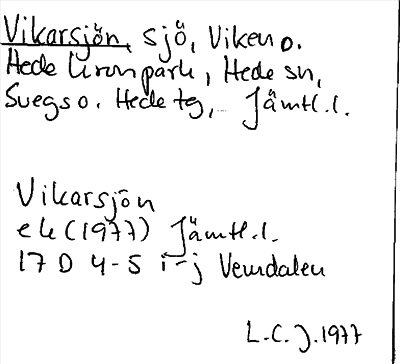 Vikarsjön, sjö, Viken o.
Hede kronpark, Hede sn,
Svegs o. Hede tg, Jämtl.l.
Vikarsjön
ek (1977) Jämtl.l.
17 D 4-5 i-j Vemdalen
L.C.J. 1977